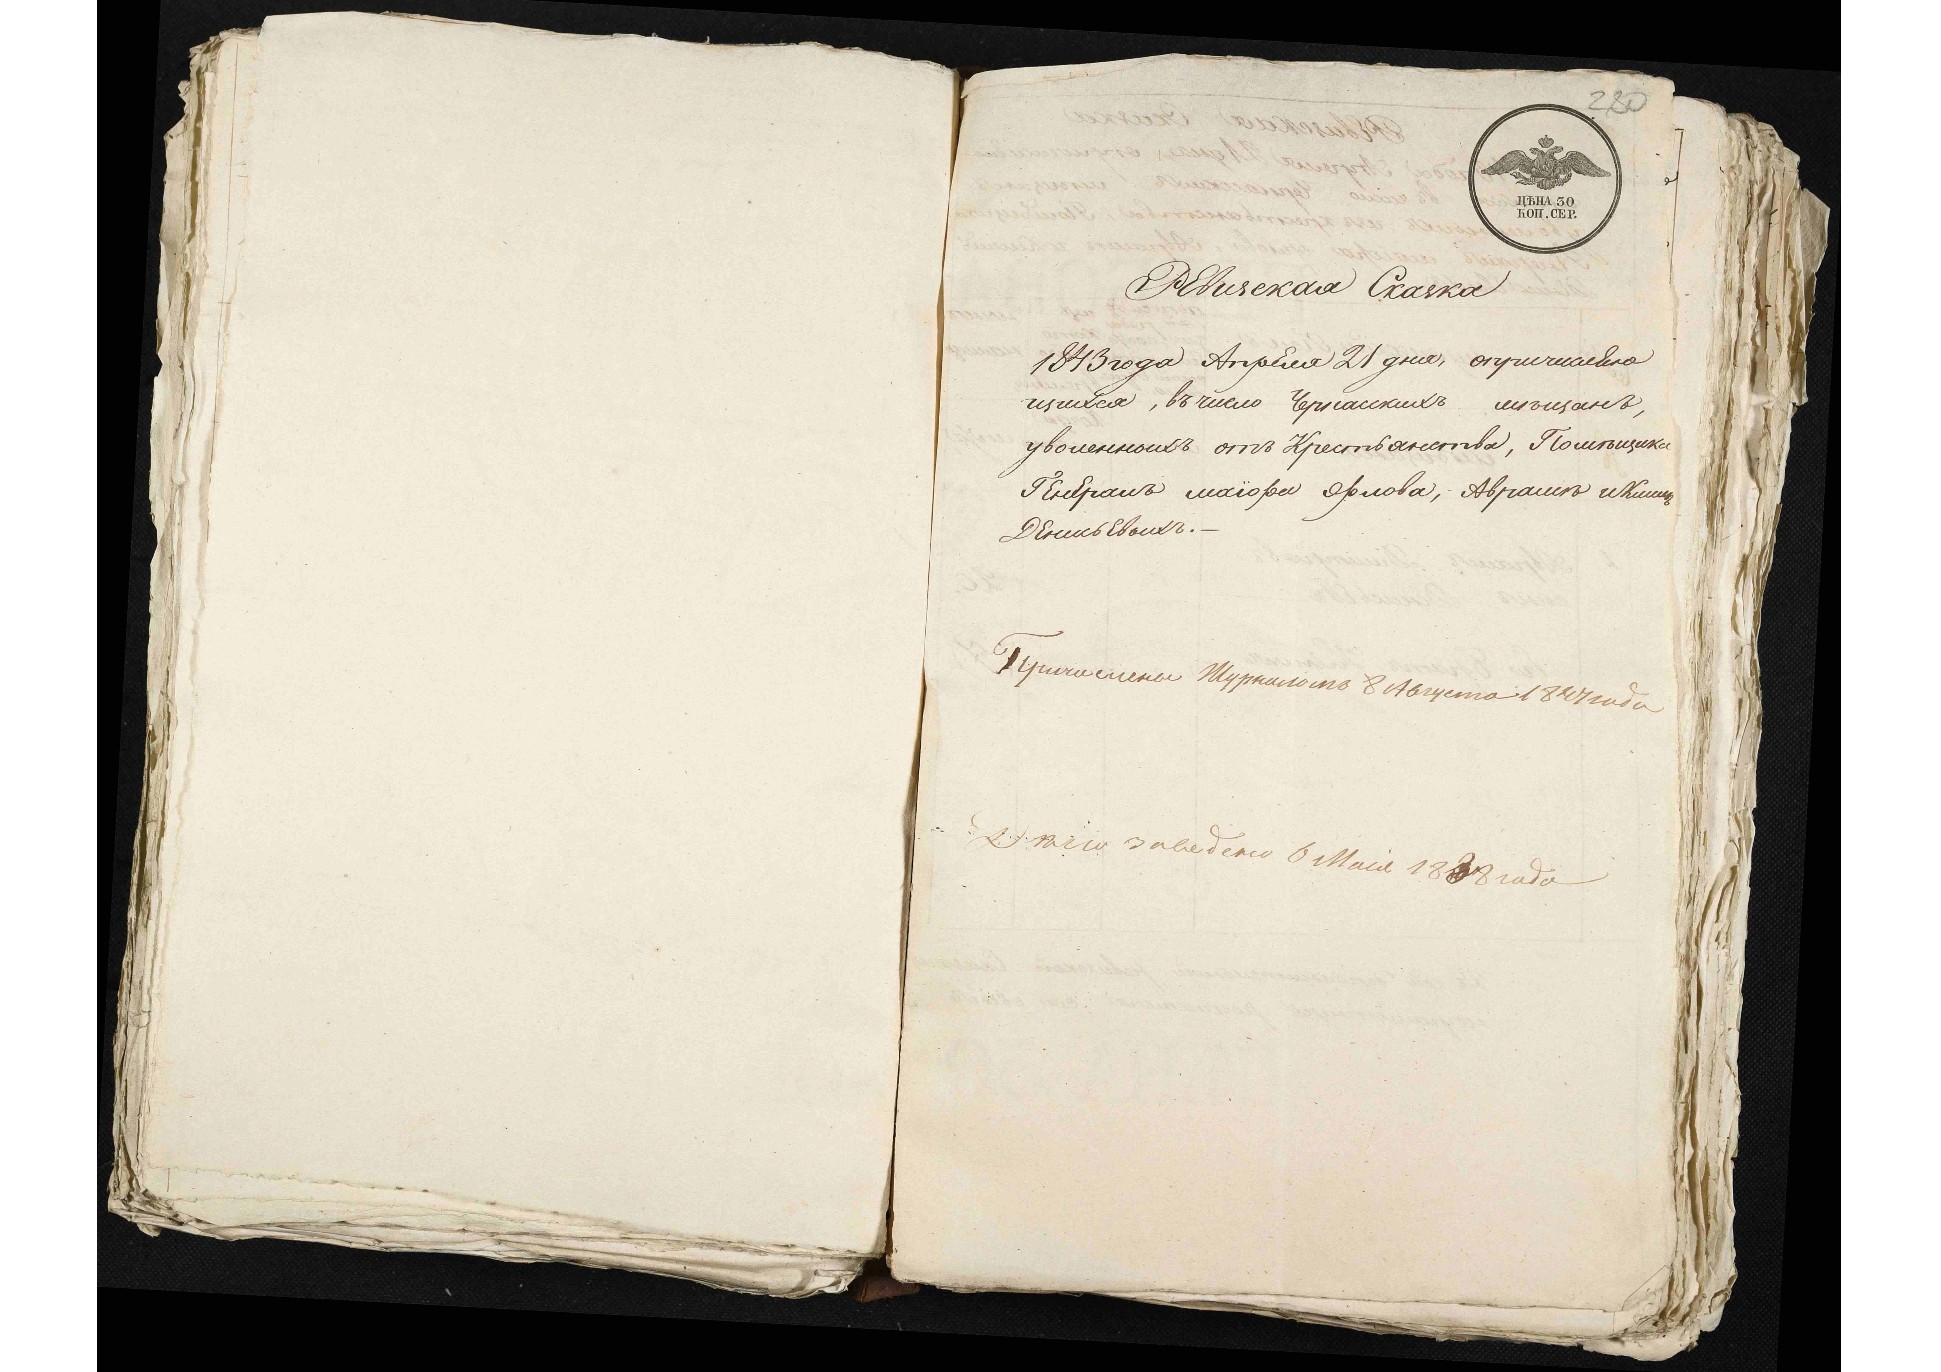 280
ЦѢНА 30
КОП. СЕР.
Ревизская Сказка
1843 года Апреля 21 дня, о причисляю
щихся, въ число мѣщанъ,
уволенныхъ отъ Крестьянства, Помѣщика
Генералъ маіора Орлова, Аврамъ
Денисьевыхъ.—
Причислены Журналомъ 8 Августа 1847 года
заведено 6 Маія года